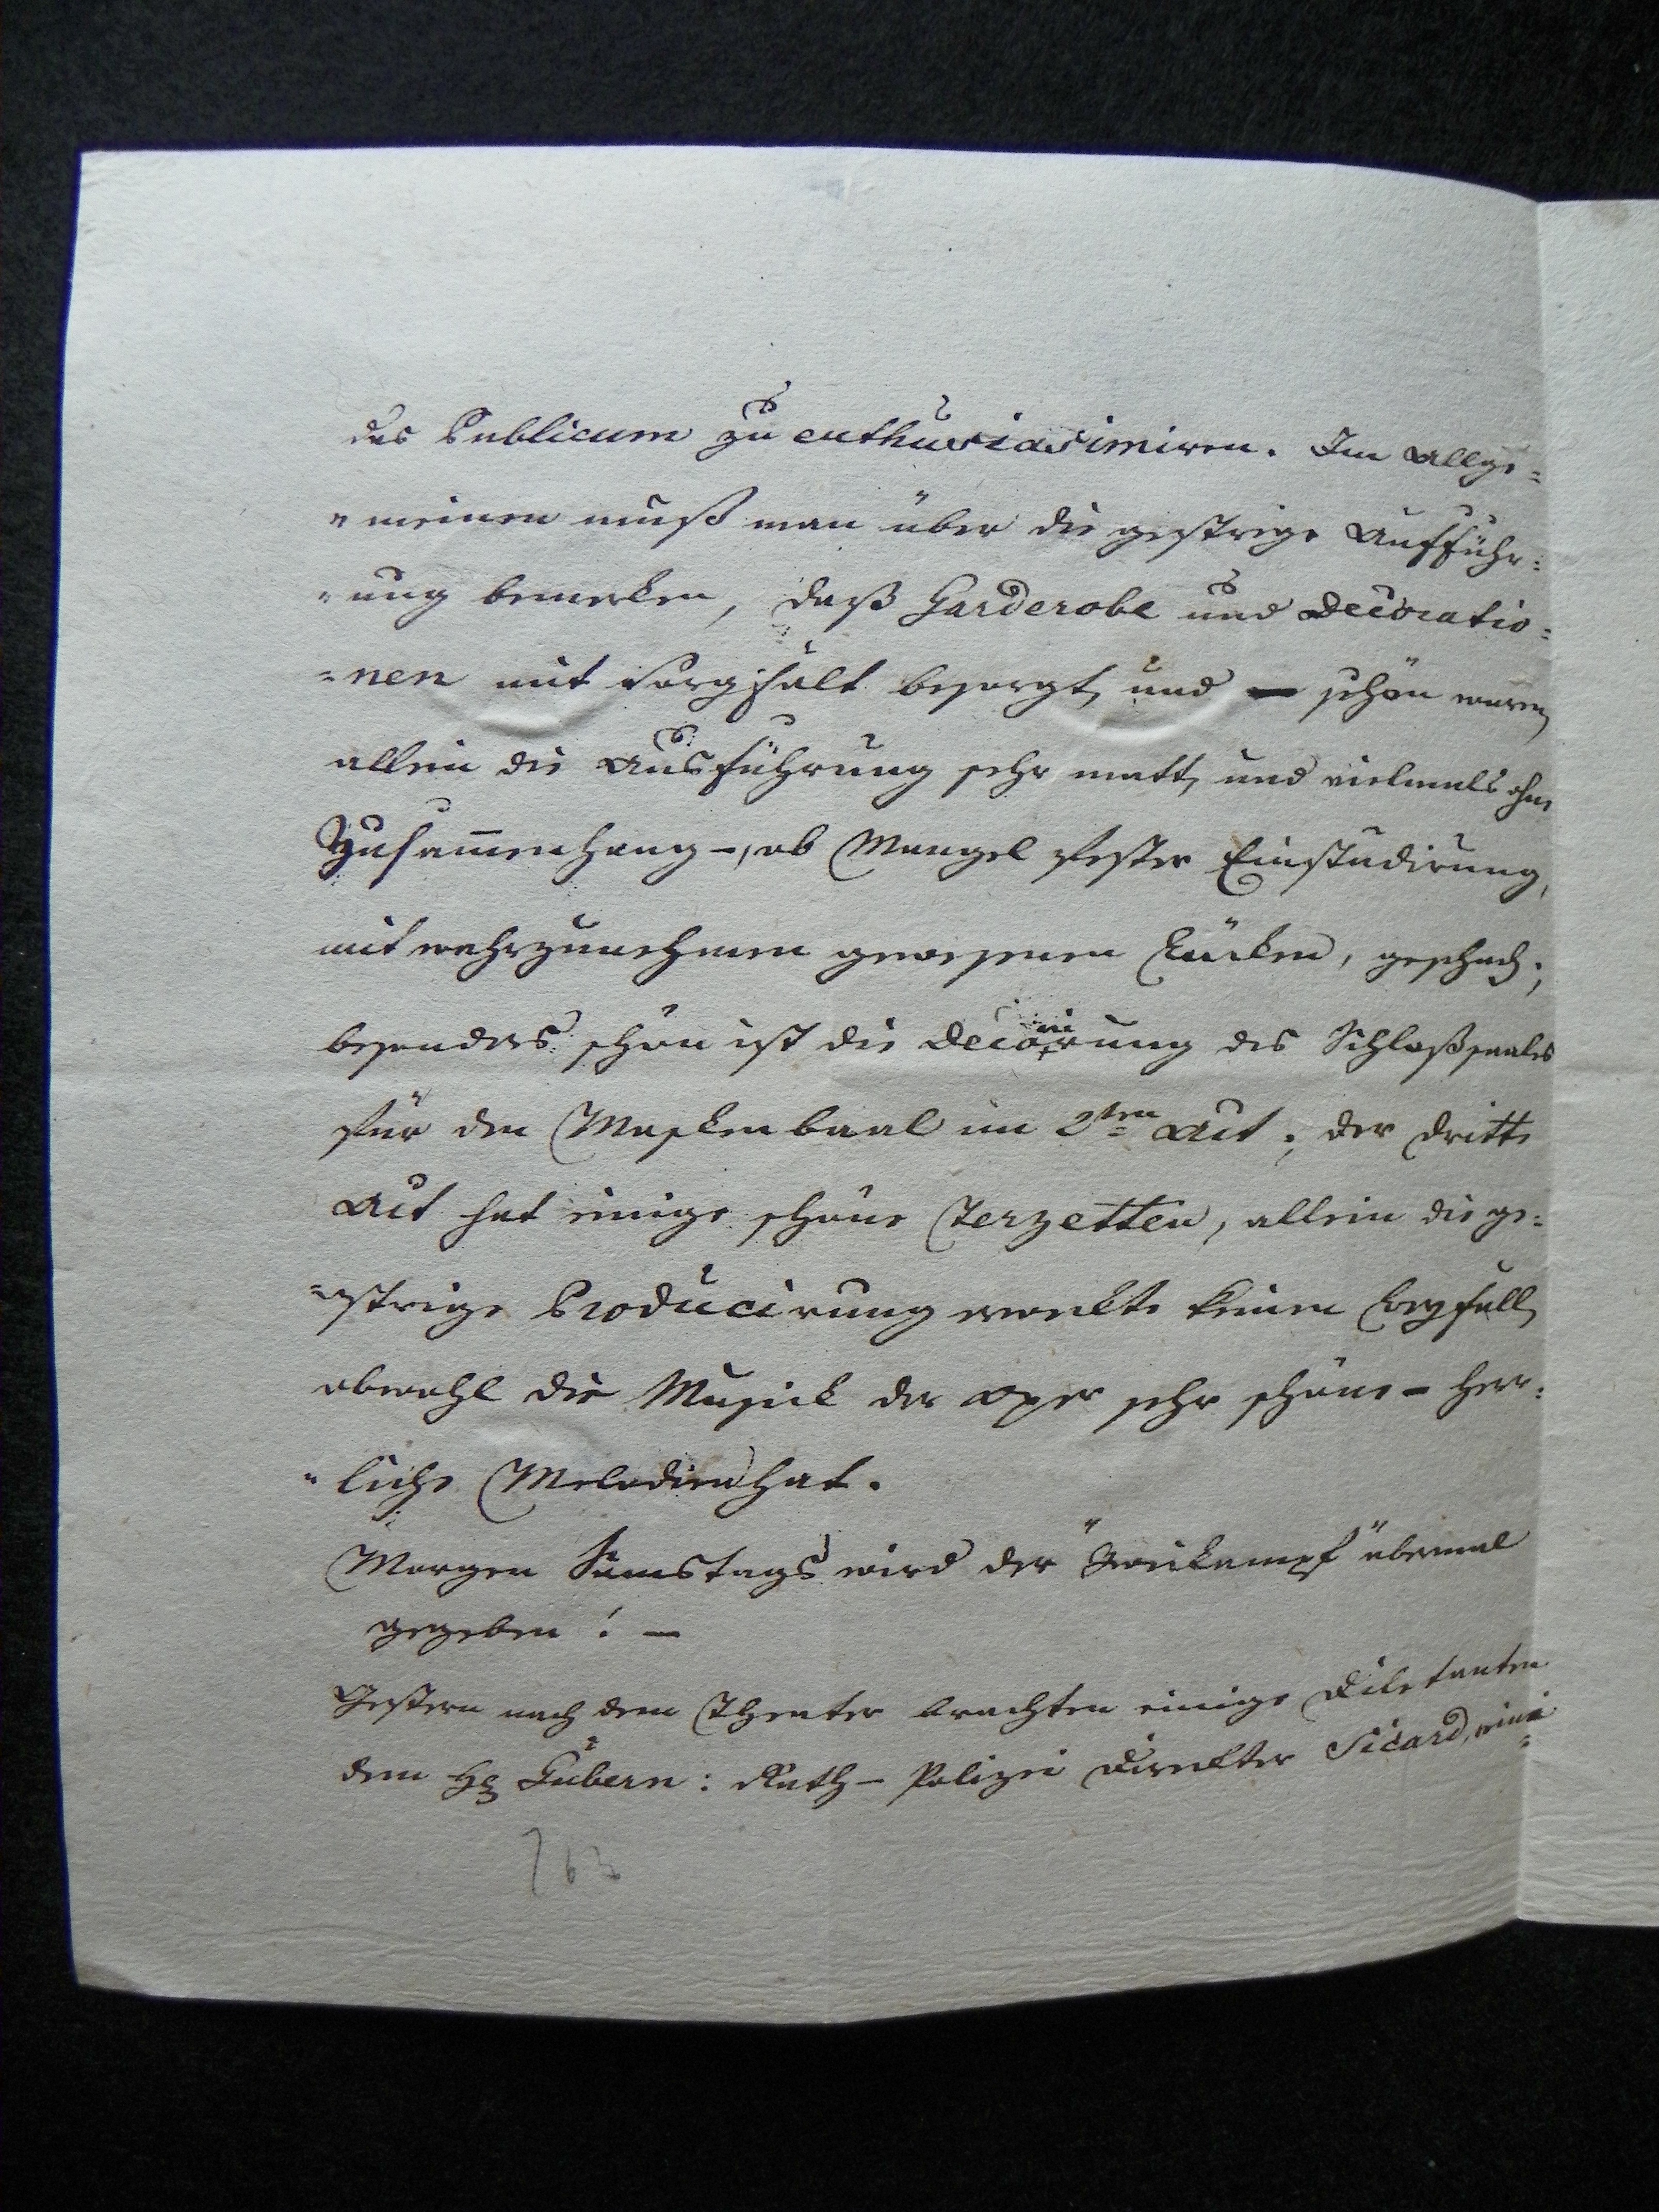 das Publicum zu enthusiasimiren. Im Allge=
"meinen muß man über die gestrige Aufführ=
"ung bemerken, daß Garderobe und Decoratio=
=nen mit Sorgfalt besorgt, und – schön waren,
allein die Ausführung sehr matt, und vielmals ohne
Zusam̄enhang –, ob Mangel fester Einstudirung,
mit wahrzunehmen gewesenen Lücken, geschah;
besonders schön ist die Decorirung des Schloßsaales
für den Maskenbaal im 2ten Act; der dritte
Act hat einige schöne Terzetten, allein die ge=
=strige Producirung erweckte keinen Beyfall,
obwohl die Musick der Oper sehr schöne – herr=
"liche Melodien hat.
Morgen Samstags wird der "Zweikampf" abermal
gegeben! –
Gestern nach dem Theater brachten einige Diletanten
dem H Gubern: Rath – Polizei Direktor Sicard, eine
763